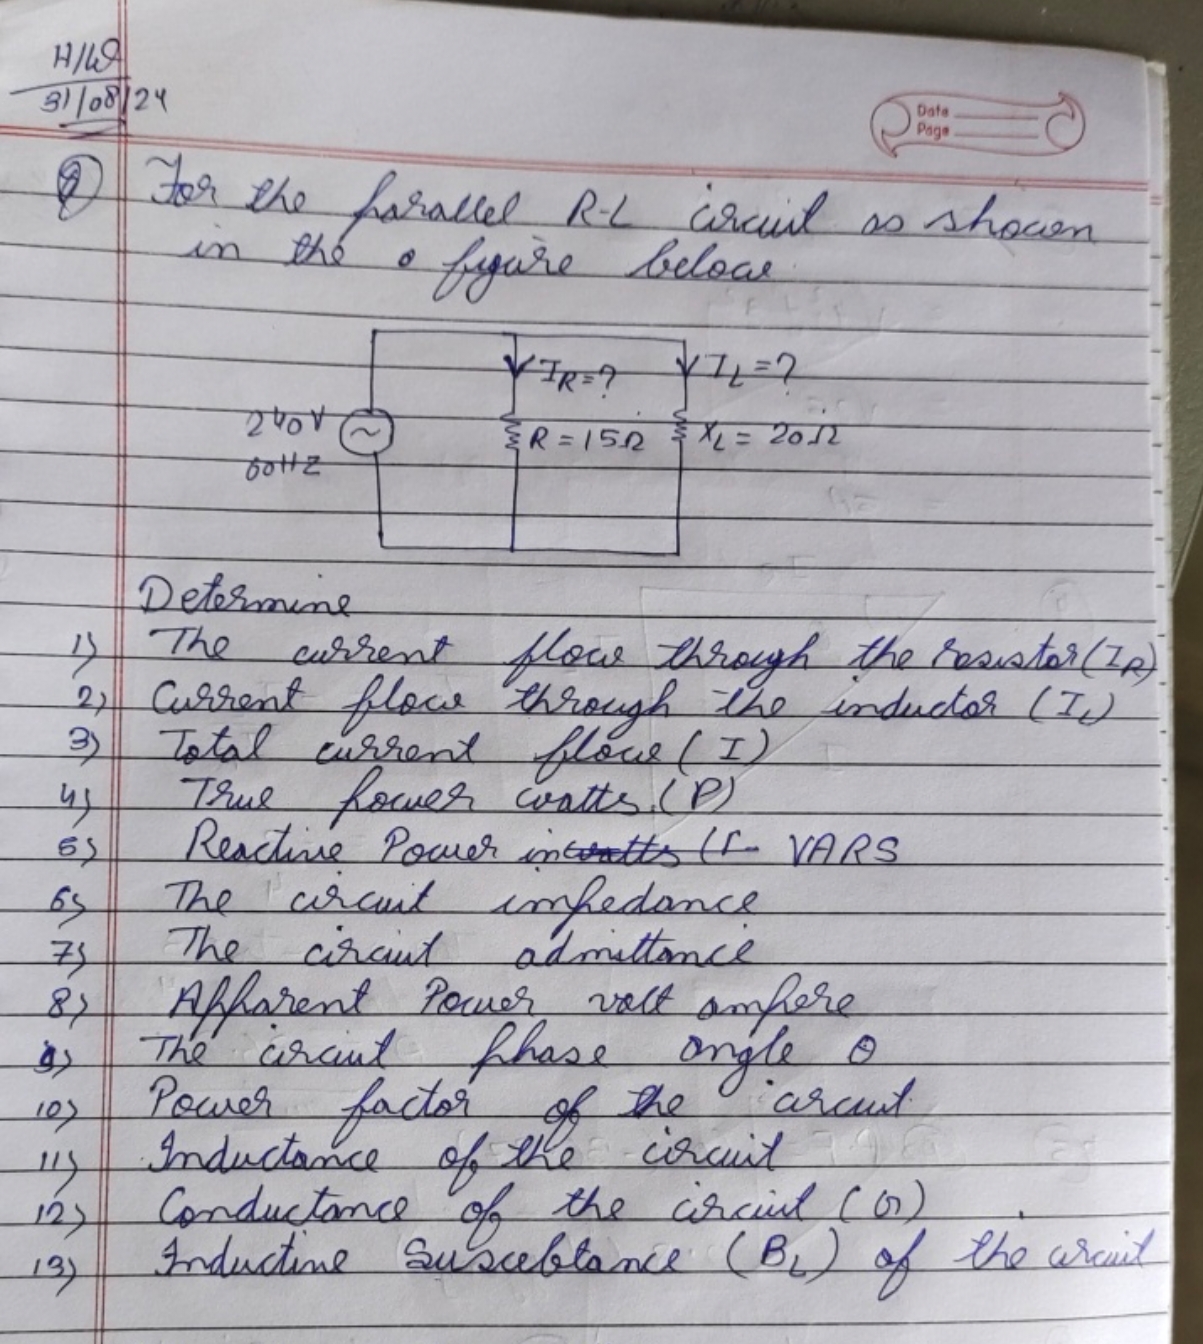 H/W
31/08/24
Date
Page
Q) For the parallel R-L circuit as shown
in the figure below
IR=?
IL=?
240V
R = 15Ω
XL = 20Ω
60HZ
Determine
1) The current flow through the resistor (IR)
2) Current flow through the inductor (IL)
3) Total current flow (I)
4) True power watts (P)
5) Reactive Power in VARS
6) The circuit impedance
7) The circuit admittance
8) Apparent Power volt ampere
9) The circuit phase angle θ
10) Power factor of the circuit
11) Inductance of the circuit
12) Conductance of the circuit (G)
13) Inductive Susceptance (BL) of the circuit